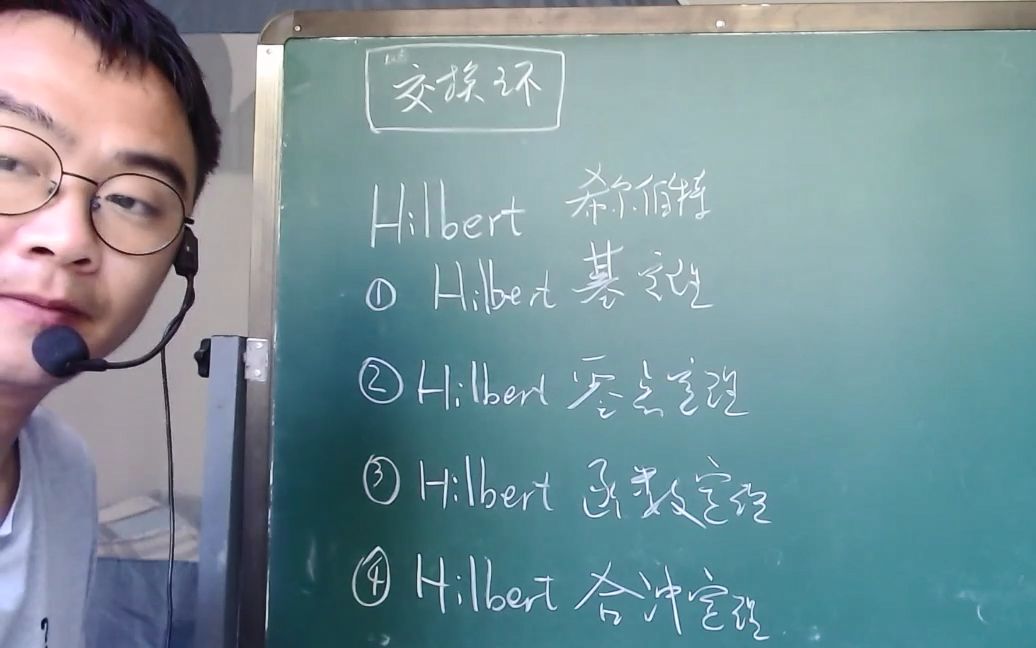 交换环
Hilbert 希尔伯特
① Hilbert 基定理
② Hilbert 零点定理
③ Hilbert 函数定理
④ Hilbert 合冲定理